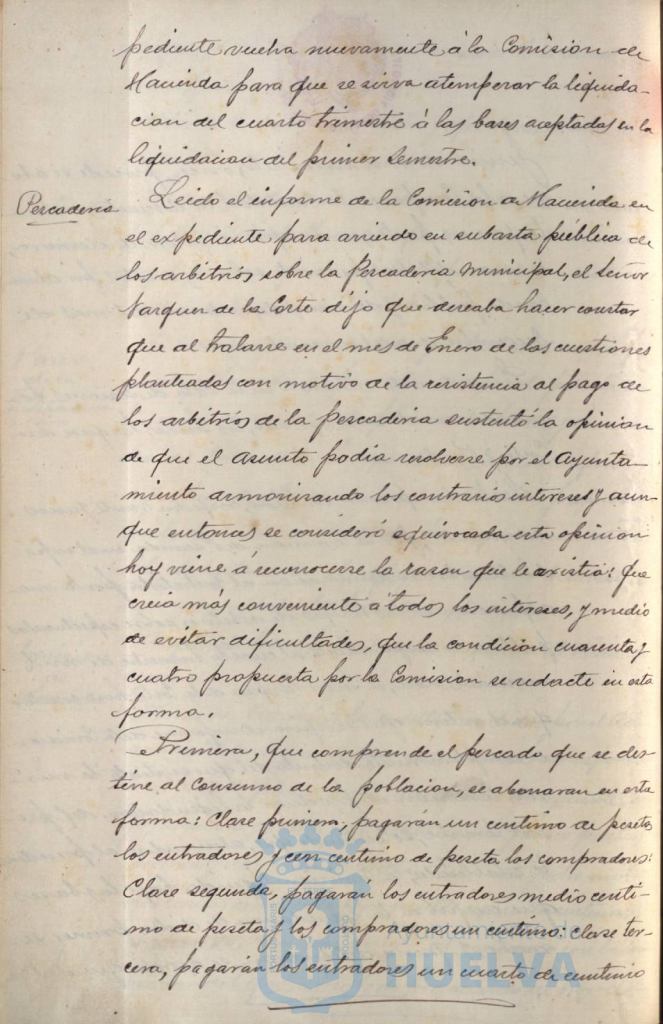 pediente vuelva nuevamente á la Comision de
Hacienda para que se sirva atemperar la liquida-
cion del cuarto trimestre á las bases aceptadas en la
liquidacion del primer Semestre.
Pescaderia
Leido el informe de la Comision de Hacienda en
el expediente para arriendo en subasta pública de
los arbitrios sobre la Pescaderia Municipal, el Señor
Vazquez de la Corte dijo que deseaba hacer constar
que al tratarse en el mes de Enero de las cuestiones
planteadas con motivo de la resistencia al pago de
los arbitrios de la pescaderia sustentó la opinion
de que el asunto podia resolverse por el Ayunta-
miento armonizando los contrarios intereses y aun-
que entonces se consideró equivocada esta opinion
hoy viene á reconocerse la razon que le existia: que
creia más conveniente á todos los intereses, y medio
de evitar dificultades, que la condicion cuarenta y
cuatro propuesta por la Comision se redacte en esta
forma.
Primera, que comprende el pescado que se des-
tine al consumo de la poblacion, se abonaran en esta
forma: Clase primera, pagarán un centimo de peseta
los entradores y cen centimo de peseta los compradores:
Clase segunda, pagarán los entradores medio centi-
mo de peseta y los compradores un centimo: clase ter-
cera, pagarán los entradores un cuarto de centimo
Ayuntamiento
HUELVA